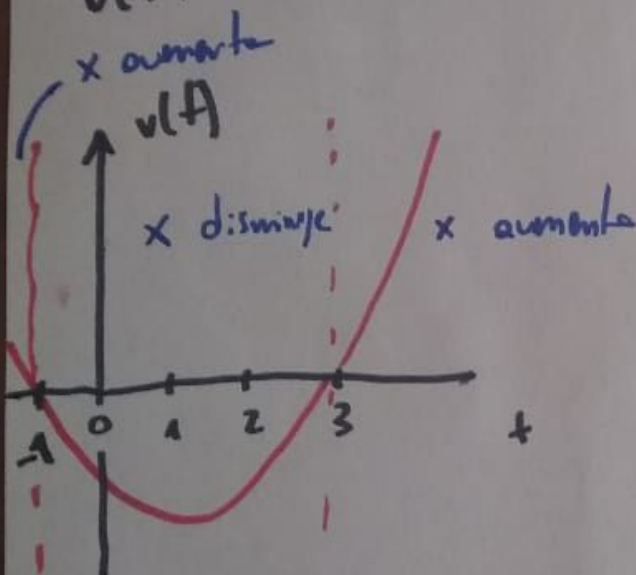 x aumenta
v(t)
x disminuye
x aumenta
-1 0 1 2 3 t